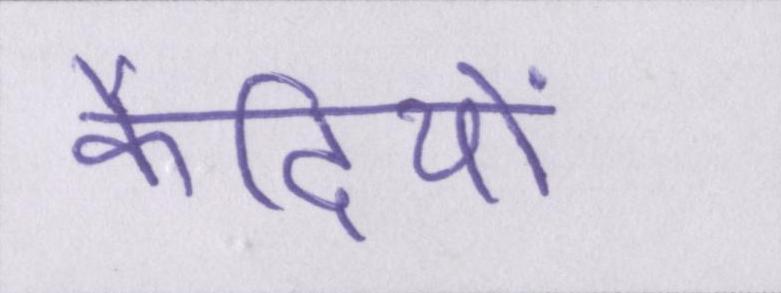 कैदियों